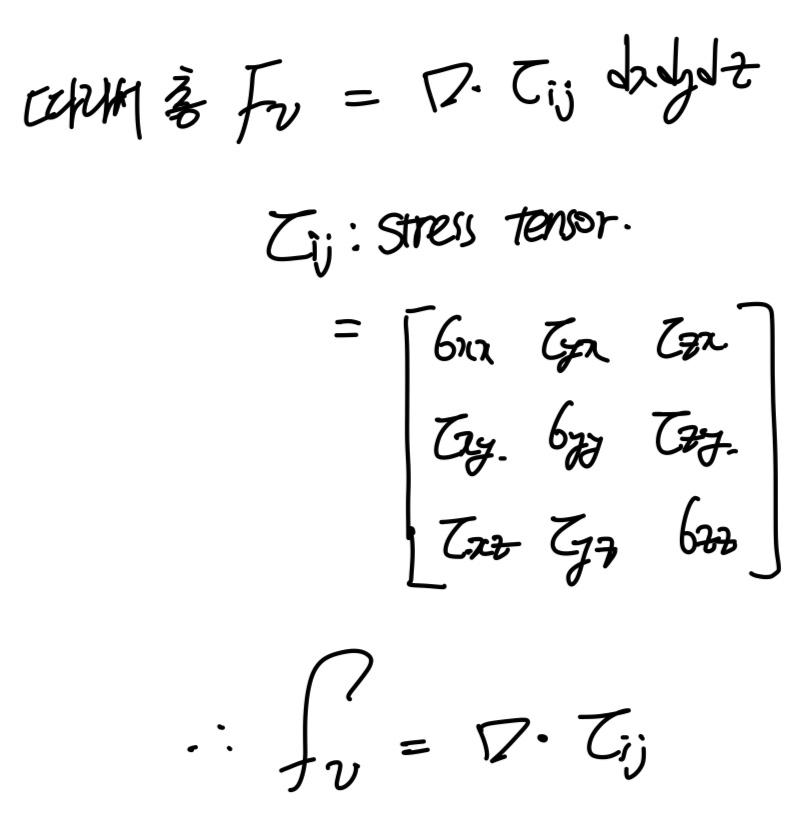 따라서 총 Fv = ∇· τij dxdydz
τij : stress tensor.
= [ σxx τyx τzx
τxy. σyy τzy.
τxz τyz σzz ]
∴ fv = ∇· τij